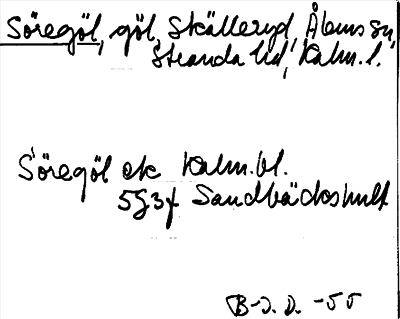 Söregöl, göl, Skälleryd, Ålems sn,
Stranda hd, Kalm. l.
Söregöl ek Kalm. bl.
5G3f Sandbäckshult
B-J.D. -55